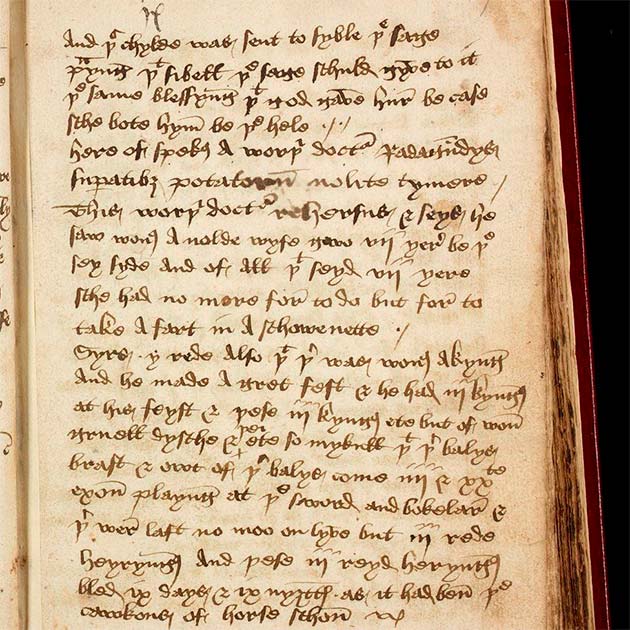 And þt chylde was sent to syble þe sage
p̄yng þt sibell þe sage schuld gyve to it
þe same blessyng þt god gave hur be case
sche bote hym be þe hele ./.
here of spekꝭ A worþi doctr
potatorū nolite tymere ./
This worþi doctr rehersus & seys he
saw wons A nolde wyfe vii yer be þe
sey syde And of all þt seyd vii yere
sche had no more for to do but for to
take A fart in A schowenette ./
Syrs y rede Also þt þr was wons A kyng
And he made A gret fest & he had iii kyngꝭ
at his feyst & þese iii kyngꝭ ete but of won
gruell dysche & þei ete so mykull þt þr balys
brast & owt of þr balys come iiii & xxti
oxon playng at þe sword and bokelar &
þr wer laft no moo on lyve but iii rede
heryyngꝭ And þese iii reyd heryngꝭ
bled ix days & ix as it had ben þe
cawkons of horse schon